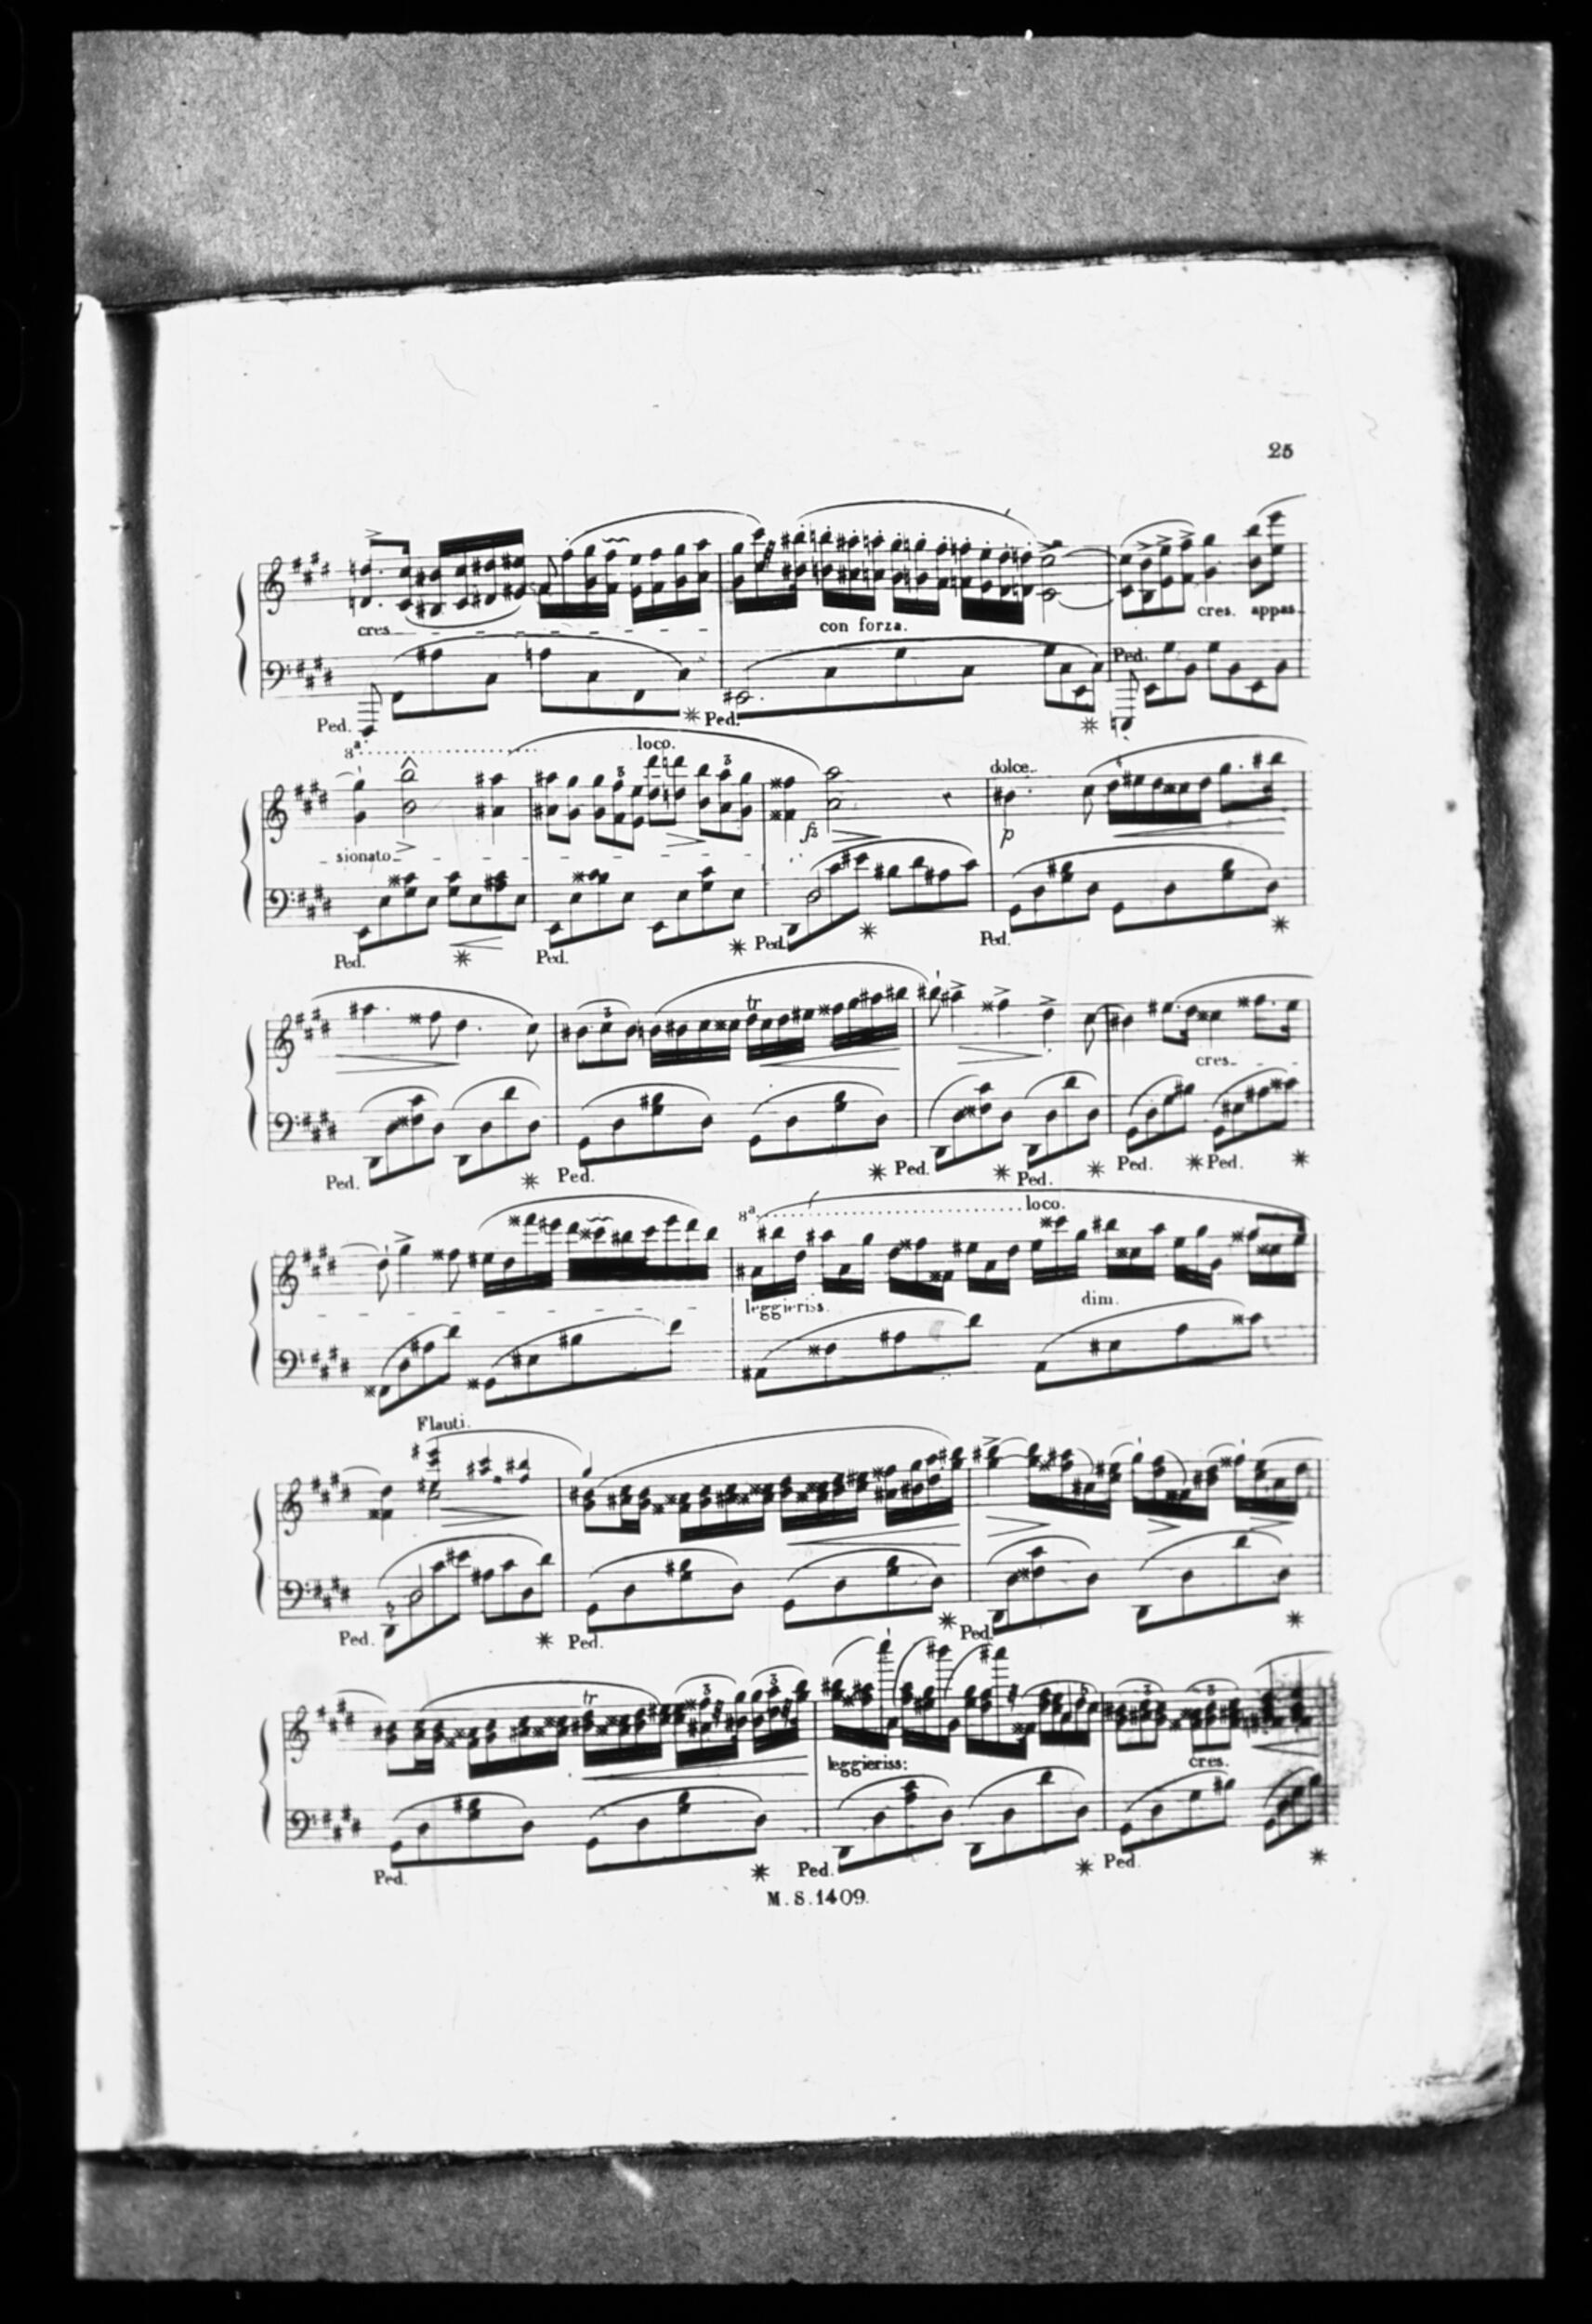 25
cres con forza. cres. appas
Ped.
Ped. * Ped. *
8ª loco. 3 3 dolce.
sionato fz p
Ped. * Ped. * Ped. * Ped. *
3 tr
cres
Ped. * Ped. * Ped. * Ped. * Ped. * Ped. *
8ª loco.
leggieriss. dim.
Flauti.
Ped. * Ped. * Ped. *
tr 3 3 3 3
leggieriss: cres.
Ped. * Ped. * Ped. *
M.S.1409.